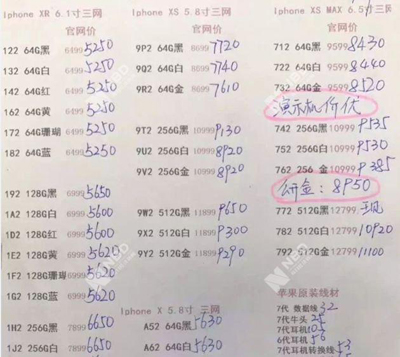 Iphone XR 6.1寸三网
官网价
122 64G黑 6499 5250
132 64G白 6499 5250
142 64G红 6499 5250
162 64G黄 6499 5250
172 64G珊瑚 6499 5250
182 64G蓝 6499 5250
192 128G黑 6999 5650
1A2 128G白 6999 5600
1D2 128G红 6999 5600
1E2 128G黄 6999 5620
1F2 128G珊瑚 6999 5620
1G2 128G蓝 6999 5620
1H2 256G黑 7899 6650
1J2 256G白 7899 6650
Iphone XS 5.8寸三网
官网价
9P2 64G黑 8699 7720
9Q2 64G白 8699 7740
9R2 64G金 8699 7610
9T2 256G黑 10099 9130
9U2 256G白 10099 8920
9V2 256G金 10099 8920
9W2 512G黑 11899 9650
9X2 512G白 11899 9300
9Y2 512G金 11899 9290
Iphone X 5.8寸 三网
A52 64G黑 5630
A62 64G白 5630
Iphone XS MAX 6.5寸三
官网价
712 64G黑 9599 8430
722 64G白 9599 8440
732 64G金 9599 8520
演示机价优
742 256G黑 10999 9535
752 256G白 10999 9530
762 256 金 10999 9385
拼盒: 8950
772 512G黑 12799
782 512G白 12799 10920
792 512G金 12799 11100
苹果原装线材
7代 数据线 32
7代牛头 25
7代耳机 105
6代耳机 56
7代耳机转换线 53